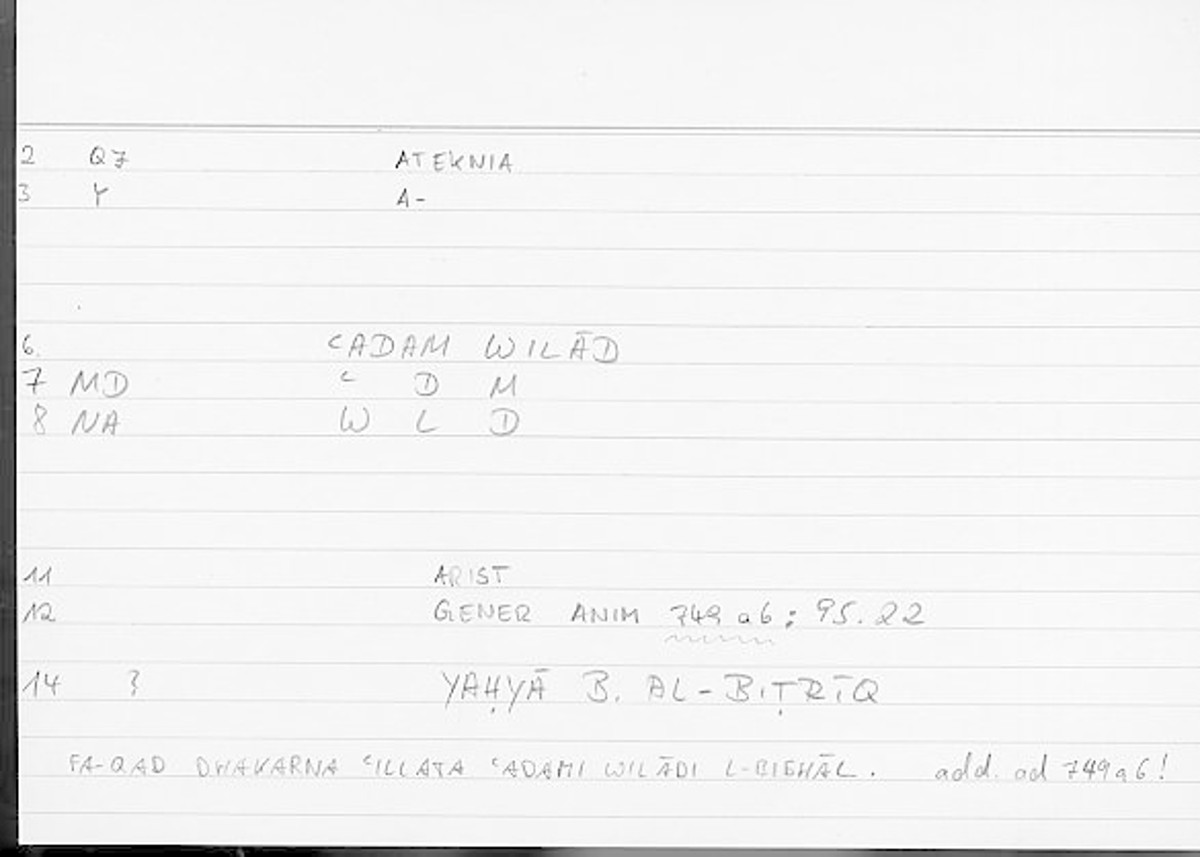 2 Q7 ATEKNIA
3 Y A-
6. ʿADAM WILĀD
7 MD ʿ D M
8 NA W L D
11 ARIST
12 GENER ANIM 749 a6 : 95.22
14 ? YAḤYĀ B. AL-BIṬRĪQ
FA-QAD DHAKARNA ʿILLATA ʿADAMI WILĀDI L-BIGHĀL. add. ad 749a6!